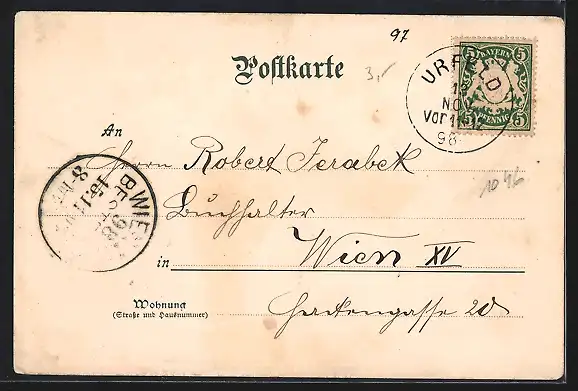 97
Postkarte
3,-
BAYERN
5 5
PFENNIG
5 5
URFELD
NO
Vor
98
An
Herrn Robert Jerabek
Buchhalter
in Wien XV
WIEN
98
Wohnung
(Straße und Hausnummer)
Herklotzgasse 20